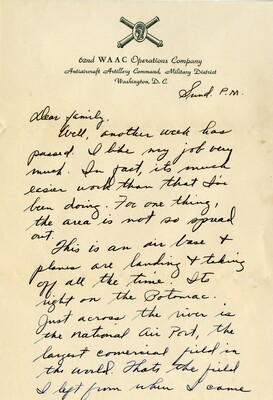 62nd WAAC Operations Company
Antiaircraft Artillery Command, Military District
Washington, D. C.
Sund. P.M.
Dear family.
Well, another week has
passed. I like my job very
much. In fact, its much
easier work than that I've
been doing. For one thing,
the area is not so spread
out.
This is an air base &
planes are landing & taking
off all the time. Its
right on the Potomac.
Just across the river is
the National Air Port, the
largest comercial field in
the world. Thats the field
I left from when I came